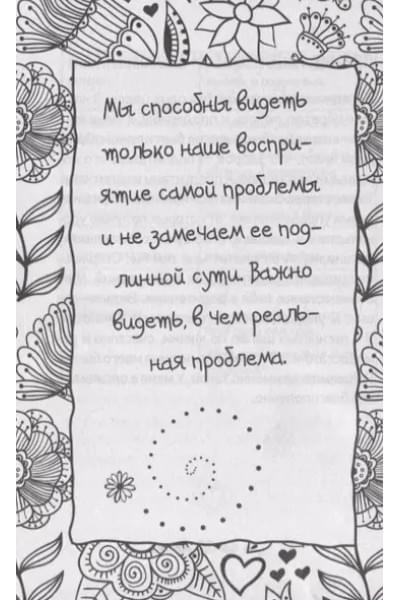 Мы способны видеть
только наше воспри-
ятие самой проблемы
и не замечаем ее под-
линной сути. Важно
видеть, в чем реаль-
ная проблема.